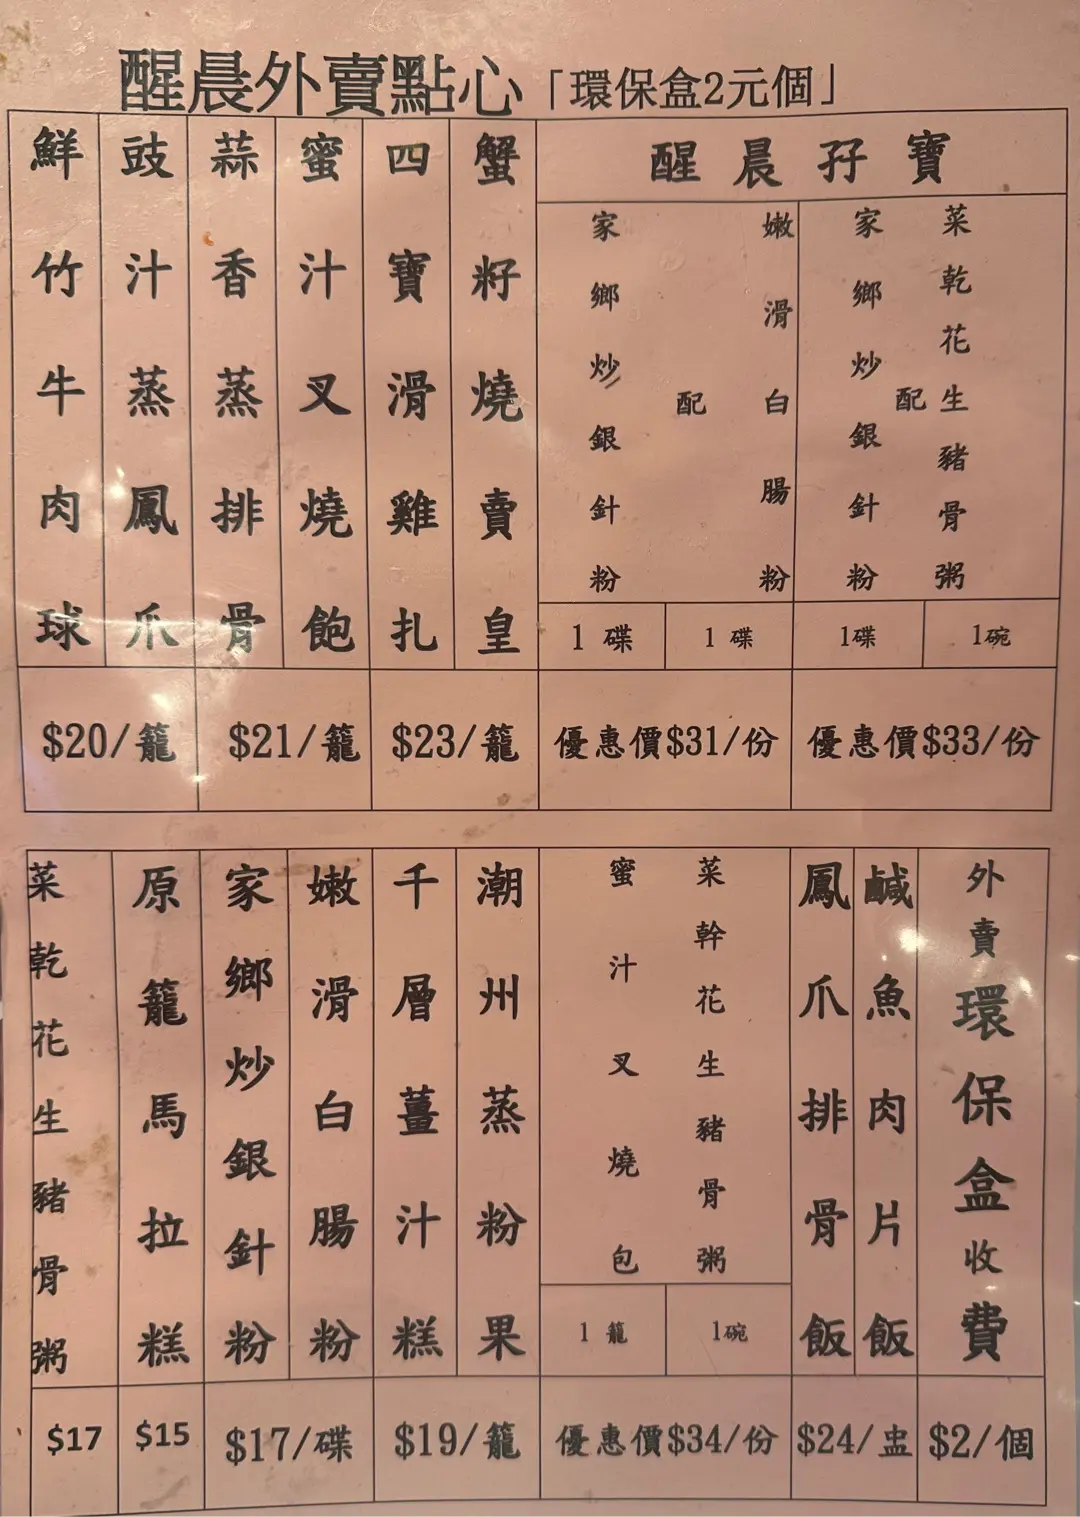 醒晨外賣點心「環保盒2元個」
鮮竹牛肉球
豉汁蒸鳳爪
蒜香蒸排骨
蜜汁叉燒飽
四寶滑雞扎
蟹籽燒賣皇
醒晨孖寶
家鄉炒銀針粉
配
嫩滑白腸粉
家鄉炒銀針粉
配
菜乾花生豬骨粥
1 碟
1 碟
1碟
1碗
$20/籠
$21/籠
$23/籠
優惠價$31/份
優惠價$33/份
菜乾花生豬骨粥
原籠馬拉糕
家鄉炒銀針粉
嫩滑白腸粉
千層薑汁糕
潮州蒸粉果
蜜汁叉燒包
菜幹花生豬骨粥
1 籠
1碗
鳳爪排骨飯
鹹魚肉片飯
外賣環保盒收費
$17
$15
$17/碟
$19/籠
優惠價$34/份
$24/盅
$2/個